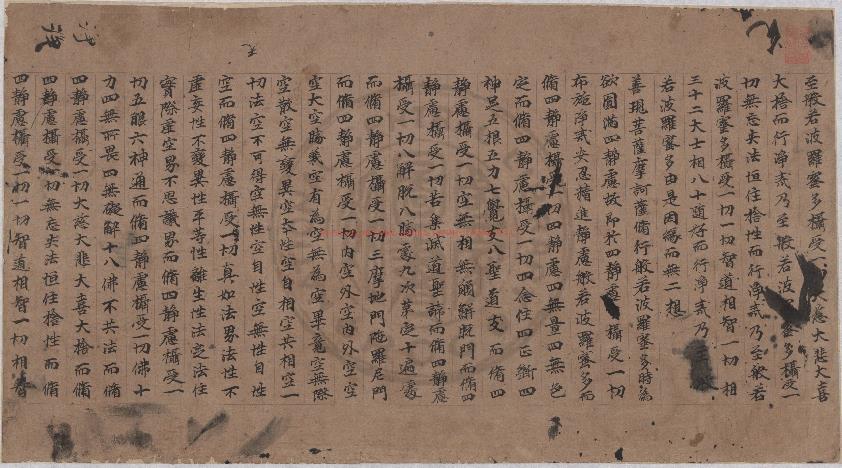 至般若波羅蜜多攝受一切大慈大悲大喜
大捨而行淨戒乃至般若波羅蜜多攝受一
切無忘失法恒住捨性而行淨戒乃至般若
波羅蜜多攝受一切一切智道相智一切相
智而行淨戒乃至般
三十二大士相八十隨好而行淨戒乃至般
若波羅蜜多由是因緣而無二想
善現菩薩摩訶薩脩行般若波羅蜜多時為
欲圓滿四靜慮故即於四靜慮 攝受一切
布施淨戒安忍精進靜慮般若波羅蜜多而
脩四靜慮攝受一切四靜慮四無量四無色
定而脩四靜慮攝受一切四念住四正斷四
神足五根五力七覺支八聖道支而脩四
靜慮攝受一切空無相無願解脫門而脩四
靜慮攝受一切苦集滅道聖諦而脩四靜慮
攝受一切八解脫八勝處九次第定十遍處
而脩四靜慮攝受一切三摩地門陁羅尼門
而脩四靜慮攝受一切內空外空內外空空
空大空勝義空有為空無為空畢竟空無際
空散空無變異空本性空自相空共相空一
切法空不可得空無性空自性空無性自性
空而脩四靜慮攝受一切真如法界法性不
虛妄性不變異性平等性離生性法定法住
實際虛空界不思議界而脩四靜慮攝受一
切五眼六神通而脩四靜慮攝受一切佛十
力四無所畏四無礙解十八佛不共法而脩
四靜慮攝受一切大慈大悲大喜大捨而脩
四靜慮攝受一切無忘失法恒住捨性而脩
四靜慮攝受一切一切智道相智一切相智